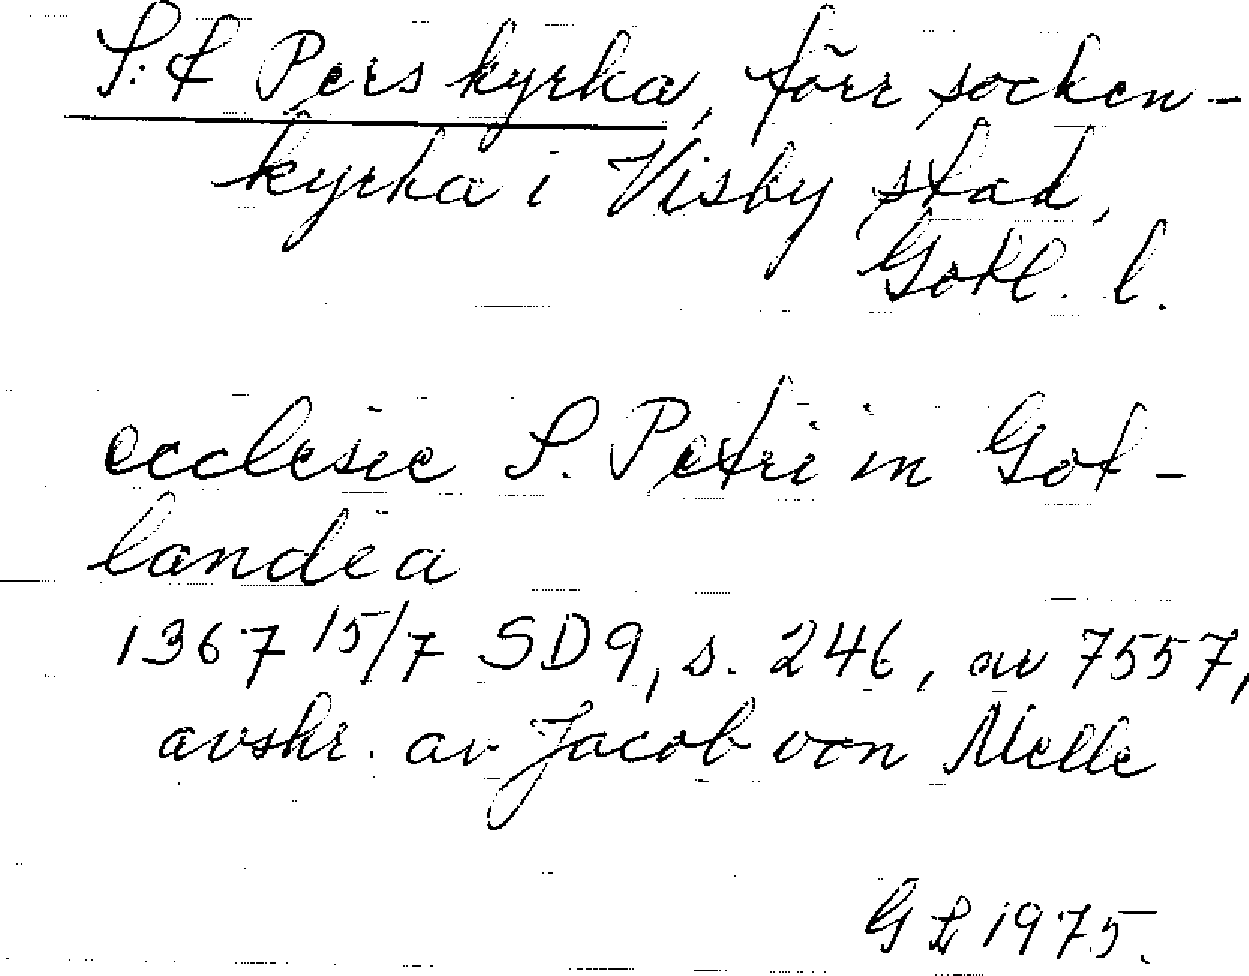 S:t Pers kyrka, förr socken-
kyrka i Visby stad,
Gotl. l.
ecclesie S. Petri in Got-
landia
1367 15/7 SD9, s. 246, nr 7557,
avskr. av Jacob von Melle
GL 1975.